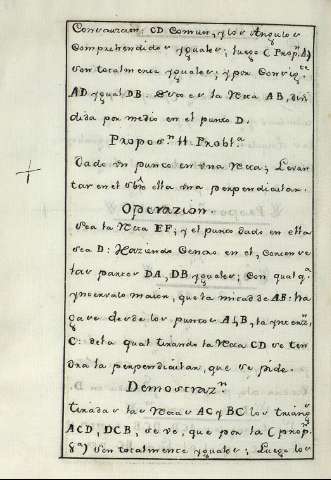 Construccion: CD Comun, y los Angulos
Comprehendidos yguales; luego (Propn. 4)
son totalmente yguales; y por Consigte
AD ygual DB. Luego es la Recta AB, divi
dida por medio en el punto D.
Proposn. 11. Probla.
Dado un punto en una Recta; Levan
tar en el sbre. ella una perpendicular.
Operazion.
Sea la Recta EF; y el punto dado en ella
sea D: Haziendo Centro en el, Cortense
las partes DA, DB yguales; Con qualqa.
yntervalo maior, que la mitad de AB: ha
gase desde los puntos A, B, la yntersn.
C: dela qual tirando la Recta CD se ten
dra la perpendicular, que se pide.
Demostrazn.
tiradas las Rectas AC y BC los triangs
ACD, DCB, se ve, que por la (prop.
8a) son totalmente yguales; Luego los